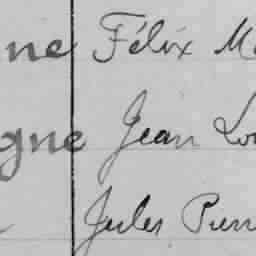 ne Félix M
gne Jean Lou
Jules Pierr